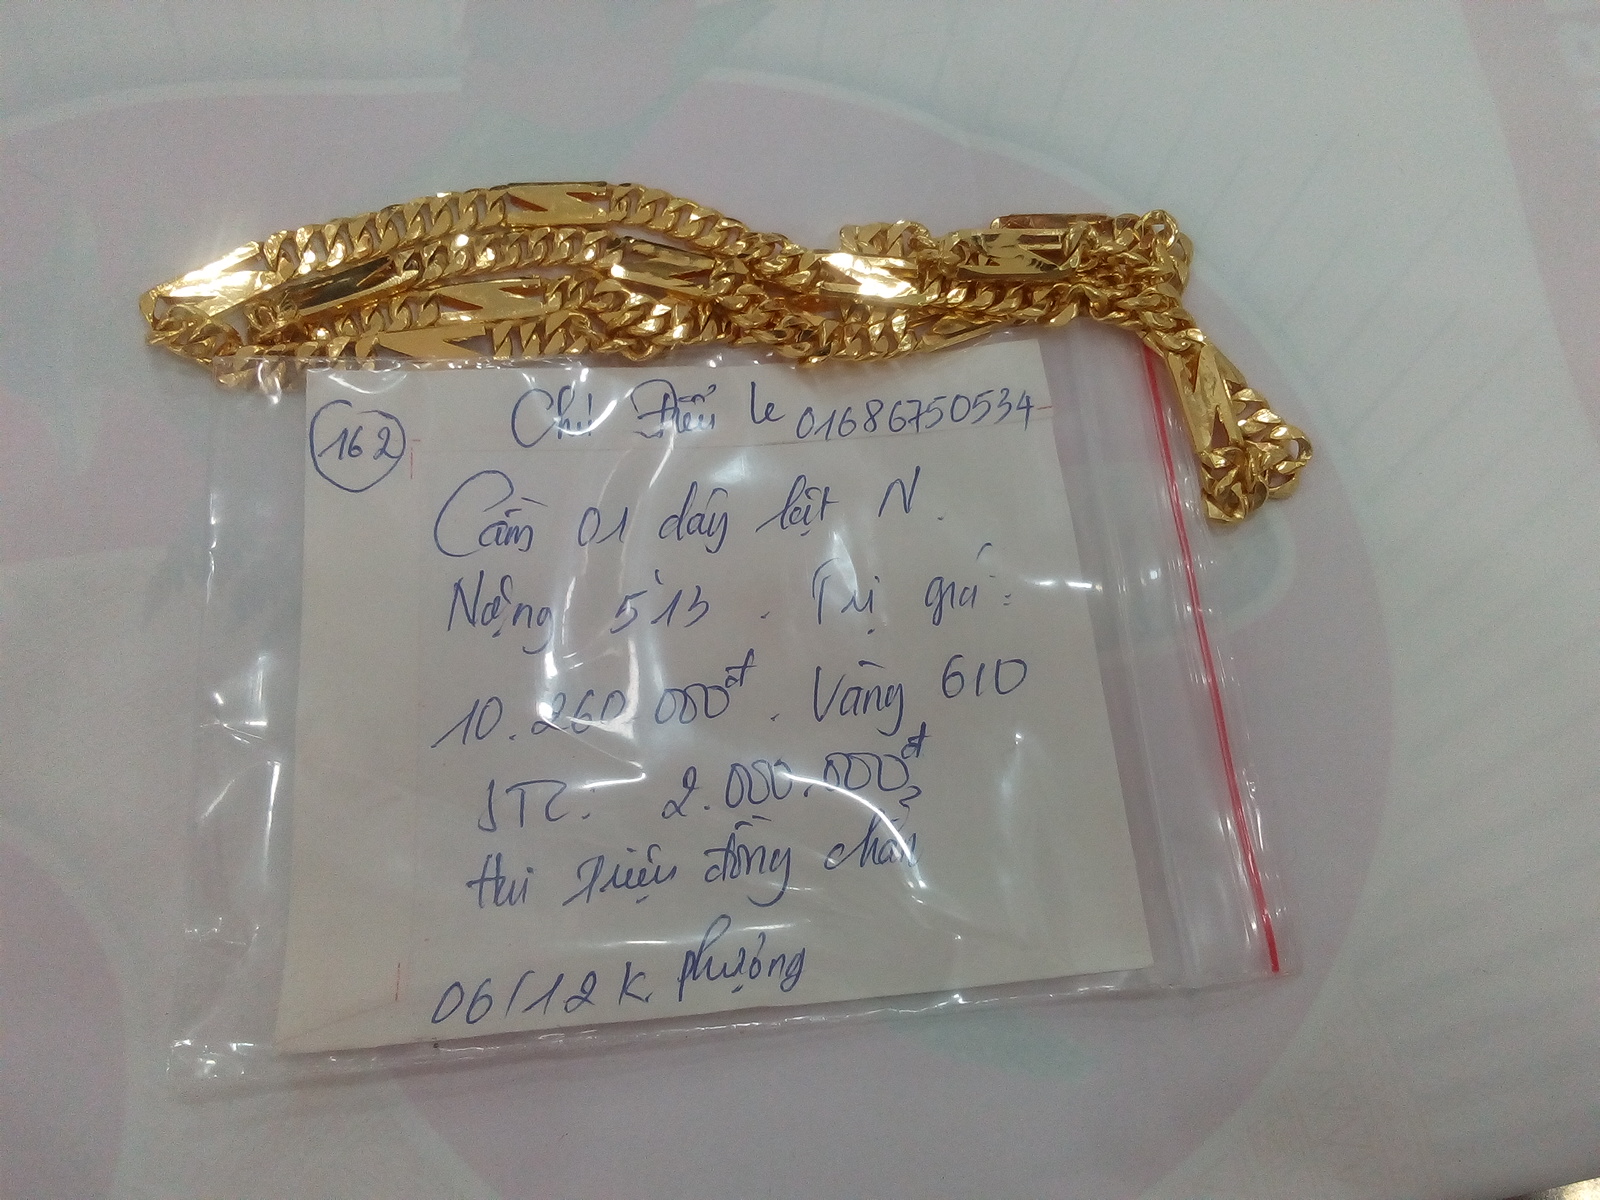 162
Chú Điểu le 01686750534
Cầm 01 dây lật N.
Nặng 5'13. Trị giá:
10.260.000đ. Vàng 610
STC: 2.000.000đ
Hai triệu đồng chẵn
06/12 K. Phượng